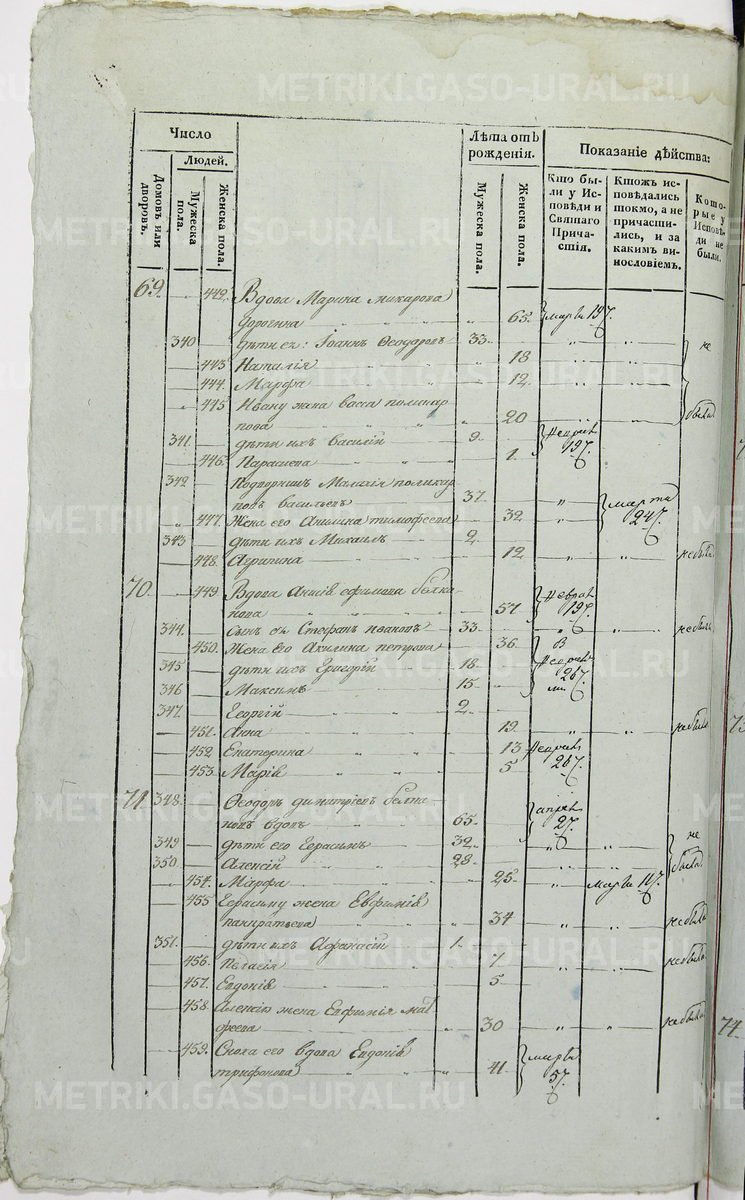 METRIKI.GASO-URAL.RU
Число
Людей.
Домовъ или дворовъ.
Мужеска пола.
Женска пола.
Лѣта отъ рожденія.
Мужеска пола.
Женска пола.
Показаніе дѣйства:
Кто бы-
ли у Ис-
повѣди и
Святаго
Прича-
стія.
Ктожъ ис-
повѣдались
токмо, а не
причасти-
лись, и за
какимъ ви-
нословіемъ.
Кото-
рые у
Исповѣ-
ди не
были.
69. 442. Вдова Марина макарова
65. марта 19
340 дѣти ея: Іоаннъ Ѳеодоровъ 33. не
443 Наталія 18
444. Марфа 12.
445 Ивану жена васса поликар
пова 20 были
341. дѣти ихъ Василій 9.
19
446. Параскева 1.
342 Малахія поликар
повъ васильевъ 37. марта
447. жена его Акилина тимофеева 32. 24
343 дѣти ихъ Михаилъ 2.
448. Агрипина 12. не были
70. 449 Вдова Анисія ефимова
57. 19
344. сынъ ея Стефанъ ивановъ 33. не были
450. жена его Акилина петрова 36.
345 дѣти ихъ Григорій 18.
346 Максимъ 15. 26
347. Георгій 2.
451. Анна 19. не были
452 Екатерина 13
453. Марія 5 26
71. 348. Ѳеодоръ димитріевъ
вдовъ 65. 2
349 дѣти его Герасимъ 32. не
350. Алексій 28. были
454. Марфа 25. марта 11
455 Герасиму жена Евфимія
панкратьева 34 не были
351. дѣти ихъ Афанасій 1.
456. Пелагія 7. не были
457. Евдокія 5.
458. Алексію жена Евфимія мат
феева 30 не были
459. Сноха его вдова Евдокія
трифонова 41. марта 5
74.